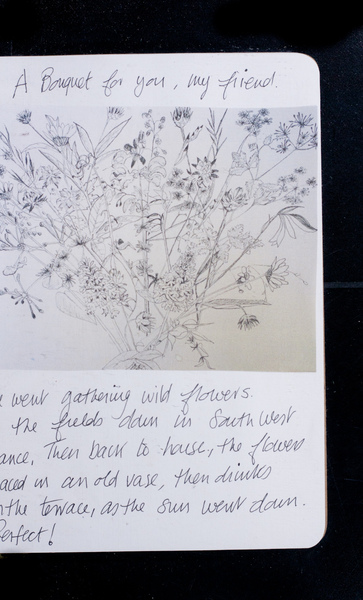 A Bouquet for you, my friend.
went gathering wild flowers.
the fields down in South West
ance, Then back to house, the flowers
aced in an old vase, then drinks
the terrace, as the sun went down.
erfect!